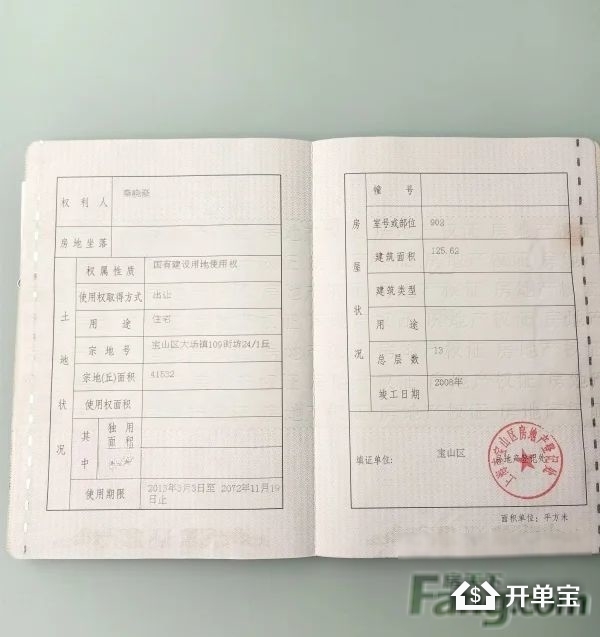 权利人
房地坐落
土地状况
权属性质 国有建设用地使用权
使用权取得方式 出让
用途 住宅
宗地号 宝山区大场镇109街坊24/1丘
宗地(丘)面积 41532
使用权面积
其中
独用面积
使用期限 2013年3月3日至 2072年11月19日止
房屋状况
幢号
室号或部位 902
建筑面积 125.62
建筑类型
用途
总层数 13
竣工日期 2008年
填证单位: 宝山区 房地产登记处
上海市宝山区房地产登记处
面积单位: 平方米
房天下
Fang.com
开单宝